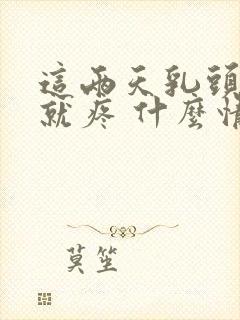 這兩天乳頭
就疼 什麼情
莫笙